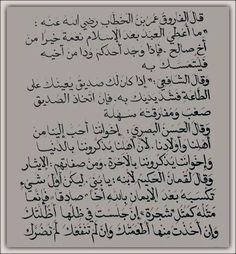 قال الفاروق عمر بن الخطاب رضي الله عنه :
"ما أعطي العبد بعد الإسلام نعمة خيراً من
أخ صالح . فإذا وجد أحدكم وداً من أخيه
فليتمسك به
وقال الشافعي : " إذا كان لك صديق يعينك على
الطاعة فشد يديك به . فإن اتخاذ الصديق
صعب ومفارقته سهلة
وقال الحسن البصري : إخواننا أحب إلينا من
أهلنا وأولادنا ، لأن أهلنا يذكروننا بالدنيا
وإخواننا يذكروننا بالآخرة . ومن صفاتهم : الإيثار
وقال لقمان الحكيم لابنه : يا بني . ليكن أول شيء
تكسبه بعد الإيمان بالله أخاً "صادقاً" فإنما
مثله كمثل شجرة "إن جلست في ظلها أظلتك
وإن أخذت منها أطعمتك وإن لم تنفعك لم تضرك